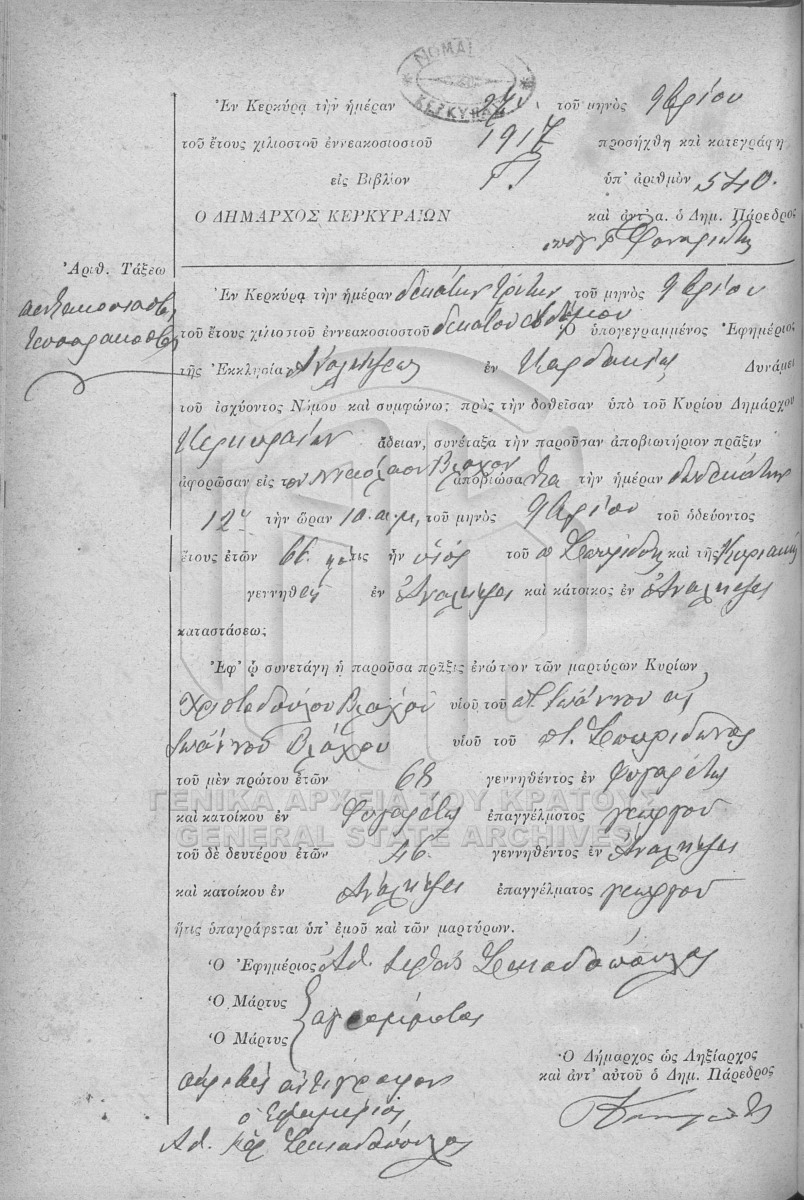 ΚΕΡΚΥΡΑ
Ἐν Κερκύρᾳ τὴν ἡμέραν 27 τοῦ μηνὸς 9βρίου
τοῦ ἔτους χιλιοστοῦ ἐννεακοσιοστοῦ 1917 προσήχθη καὶ κατεγράφη
εἰς Βιβλίον ὑπ' ἀριθμὸν 540.
Ο ΔΗΜΑΡΧΟΣ ΚΕΡΚΥΡΑΙΩΝ καὶ ἀντ' α. ὁ Δημ. Πάρεδρος
Ἀριθ. Τάξεω
πεντακοσιοστὴ
τεσσαρακοστὴ
Ἐν Κερκύρᾳ τὴν ἡμέραν δεκάτην τρίτην τοῦ μηνὸς 9βρίου
τοῦ ἔτους χιλιοστοῦ ἐννεακοσιοστοῦ δεκάτου ἑβδόμου Ὁ ὑπογεγραμμένος Ἐφημέριος
τῆς Ἐκκλησίας Ἀναλήψεως ἐν Δυνάμει
τοῦ ἰσχύοντος Νόμου καὶ συμφώνως πρὸς τὴν δοθεῖσαν ὑπὸ τοῦ Κυρίου Δημάρχου
Κερκυραίων ἄδειαν, συνέταξα τὴν παροῦσαν ἀποβιωτήριον πρᾶξιν
ἀφορῶσαν εἰς τον Νικόλαον Βλάχον ἀποβιώσαντα τὴν ἡμέραν δωδεκάτην
12ην τὴν ὥραν 10 π.μ, τοῦ μηνὸς 9βρίου τοῦ ὁδεύοντος
ἔτους ἐτῶν 66. ὅστις ἦν υἱός τοῦ π Σπυρίδου καὶ τῆς Κυριακῆς
γεννηθεὶς ἐν Ἀναλήψει καὶ κάτοικος ἐν Ἀναλήψει
καταστάσεως
Ἐφ' ᾧ συνετάγη ἡ παροῦσα πρᾶξις ἐνώπιον τῶν μαρτύρων Κυρίων
Χριστοδούλου Βλάχου υἱοῦ τοῦ π. Ἰωάννου ας
Ἰωάννου Βλάχου υἱοῦ τοῦ π. Σπυρίδωνος
τοῦ μὲν πρώτου ἐτῶν 68 γεννηθέντος ἐν Φιγαρέτῳ
καὶ κατοίκου ἐν Φιγαρέτῳ ἐπαγγέλματος γεωργοῦ
ΓΕΝΙΚΑ ΑΡΧΕΙΑ ΤΟΥ ΚΡΑΤΟΥΣ
GENERAL STATE ARCHIVES
τοῦ δὲ δευτέρου ἐτῶν 46. γεννηθέντος ἐν Ἀναλήψει
καὶ κατοίκου ἐν Ἀναλήψει ἐπαγγέλματος γεωργοῦ
ἥτις ὑπογράφεται ὑπ' ἐμοῦ καὶ τῶν μαρτύρων.
Ὁ Ἐφημέριος
Ὁ Μάρτυς
ἀγράμματος
Ὁ Μάρτυς
Ὁ Δήμαρχος ὡς Ληξίαρχος
καὶ ἀντ' αὐτοῦ ὁ Δημ. Πάρεδρος
ἀκριβὲς ἀντίγραφον
ὁ Ἐφημέριος